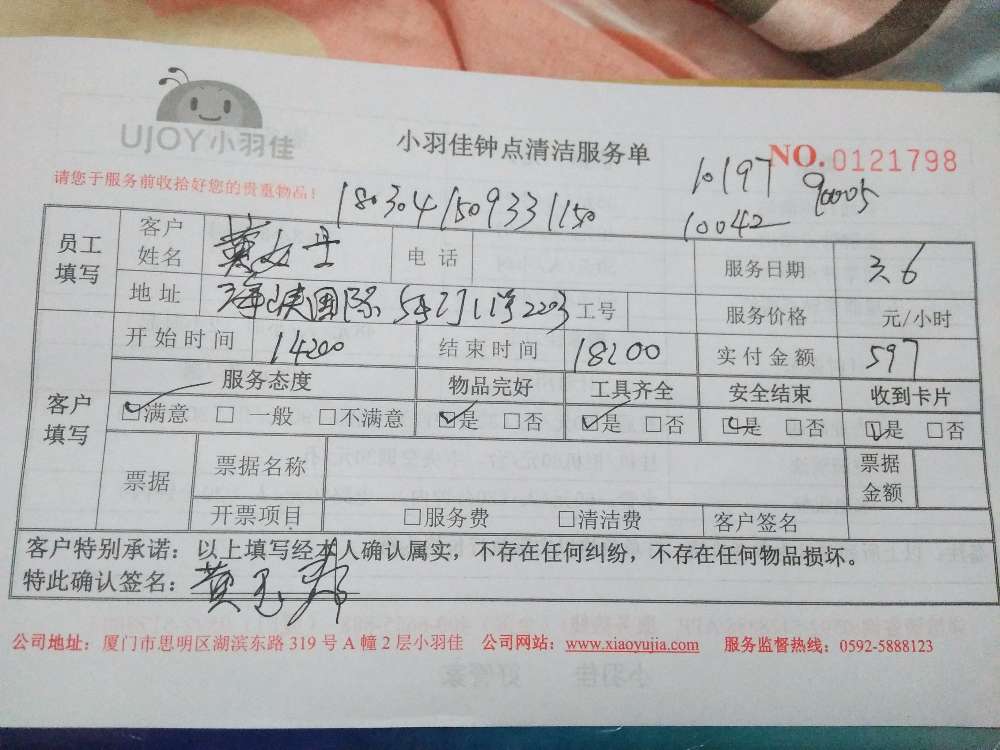 UJOY小羽佳
小羽佳钟点清洁服务单
NO.0121798
请您于服务前收拾好您的贵重物品！
1803041509331150
10197
90005
10042
员工填写 客户姓名 黄女士 电话 服务日期 3.6
地址 国际 2203 工号 服务价格 元/小时
开始时间 14:00 结束时间 18:00 实付金额 597
客户填写 服务态度 物品完好 工具齐全 安全结束 收到卡片
☑满意 □一般 □不满意 ☑是 □否 ☑是 □否 ☑是 □否 ☑是 □否
票据 票据名称 票据金额
开票项目 □服务费 □清洁费 客户签名
客户特别承诺：以上填写经本人确认属实，不存在任何纠纷，不存在任何物品损坏。
特此确认签名：黄
公司地址：厦门市思明区湖滨东路 319 号 A 幢 2 层小羽佳 公司网站：www.xiaoyujia.com 服务监督热线：0592-5888123